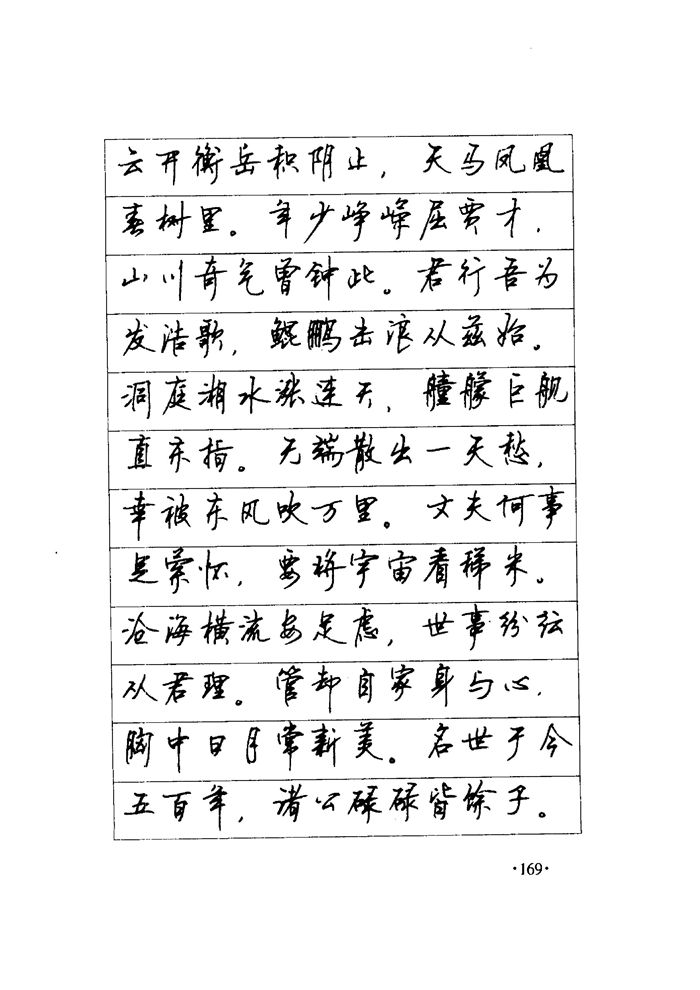 云开衡岳积阴止，天马凤凰
春树里。年少峥嵘屈贾才，
山川奇气曾钟此。君行吾为
发浩歌，鲲鹏击浪从兹始。
洞庭湘水涨连天，艟艨巨舰
直东指。无端散出一天愁，
幸被东风吹万里。丈夫何事
足萦怀，要将宇宙看稊米。
沧海横流安足虑，世事纷纭
从君理。管却自家身与心，
胸中日月常新美。名世于今
五百年，诸公碌碌皆馀子。
·169·